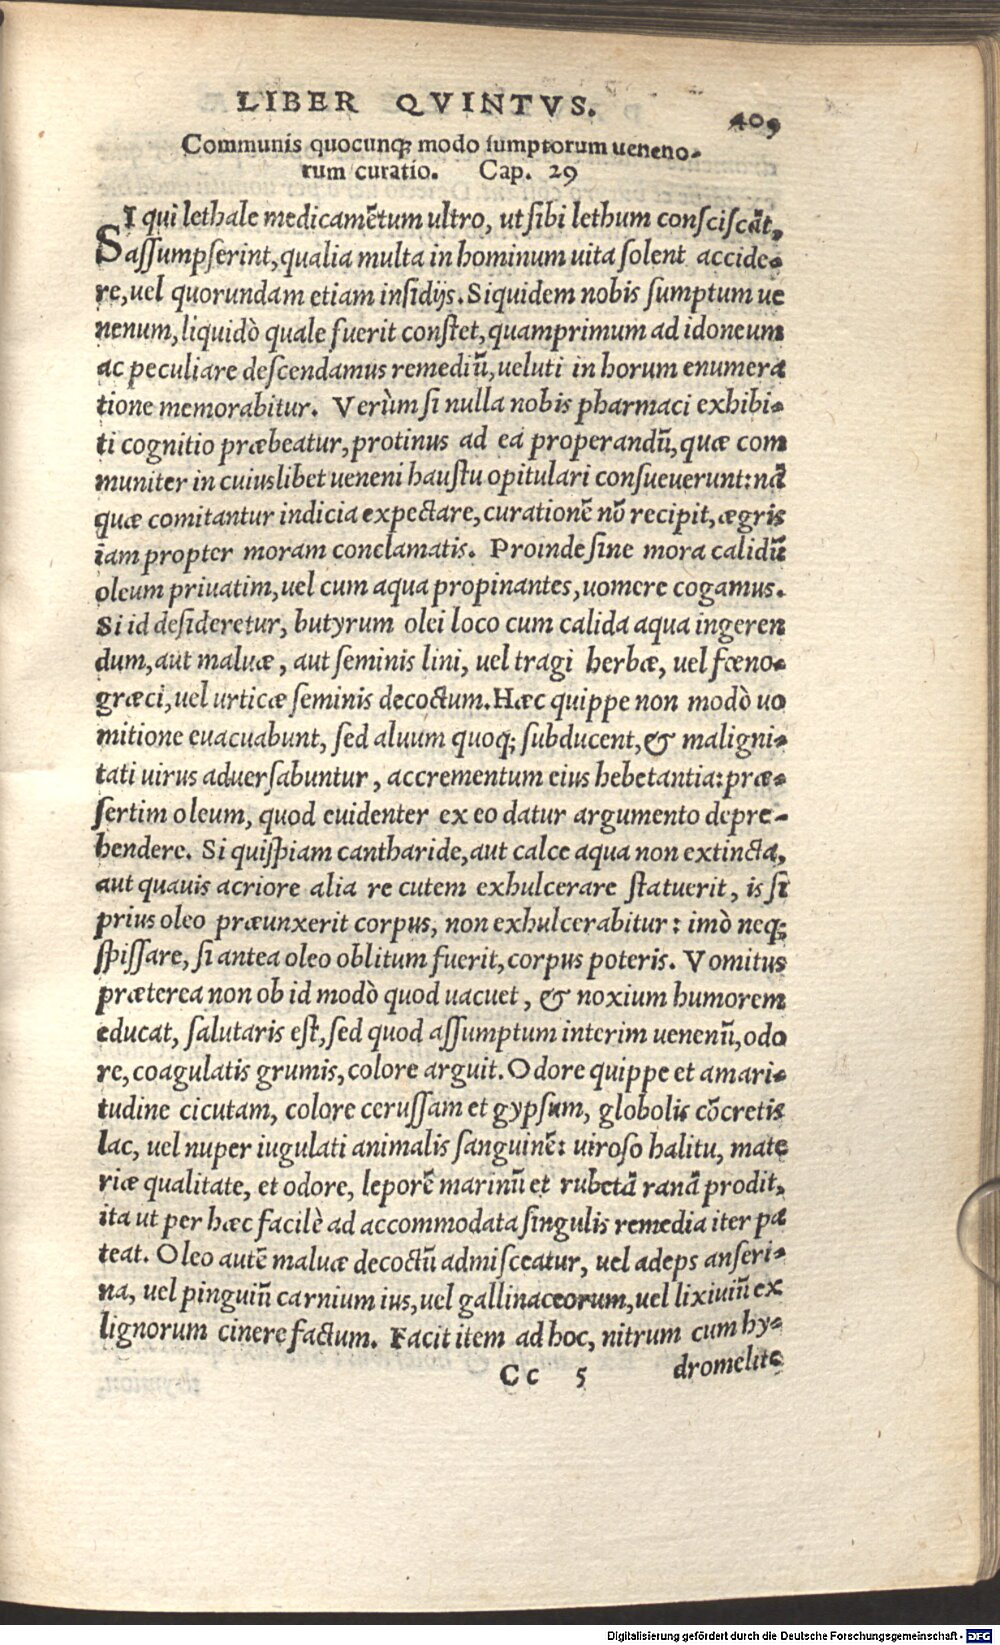 LIBER QVINTVS.
409
Communis quocunq; modo sumptorum ueneno-
rum curatio. Cap. 29
SI qui lethale medicamẽtum ultro, ut sibi lethum consciscãt,
assumpserint, qualia multa in hominum uita solent accide-
re, uel quorundam etiam insidijs. Siquidem nobis sumptum ue
nenum, liquidò quale fuerit constet, quamprimum ad idoneum
ac peculiare descendamus remediũ, ueluti in horum enumera
tione memorabitur. Verùm si nulla nobis pharmaci exhibi-
ti cognitio præbeatur, protinus ad ea properandũ, quæ com
muniter in cuiuslibet ueneni haustu opitulari consueuerunt: nã
quæ comitantur indicia expectare, curationẽ nõ recipit, ægris
iam propter moram conclamatis. Proinde sine mora calidũ
oleum priuatim, uel cum aqua propinantes, uomere cogamus.
Si id desideretur, butyrum olei loco cum calida aqua ingeren
dum, aut maluæ, aut seminis lini, uel tragi herbæ, uel fœno-
græci, uel urticæ seminis decoctum. Hæc quippe non modò uo
mitione euacuabunt, sed aluum quoq; subducent, & maligni-
tati uirus aduersabuntur, accrementum eius hebetantia: præ-
sertim oleum, quod euidenter ex eo datur argumento depre-
hendere. Si quispiam cantharide, aut calce aqua non extincta,
aut quauis acriore alia re cutem exhulcerare statuerit, is si
prius oleo præunxerit corpus, non exhulcerabitur: imò neq;
spissare, si antea oleo oblitum fuerit, corpus poteris. Vomitus
præterea non ob id modò quod uacuet, & noxium humorem
educat, salutaris est, sed quod assumptum interim uenenũ, odo
re, coagulatis grumis, colore arguit. Odore quippe et amari-
tudine cicutam, colore cerussam et gypsum, globolis cõcretis
lac, uel nuper iugulati animalis sanguinẽ: uiroso halitu, mate
riæ qualitate, et odore, leporẽ marinũ et rubetã ranã prodit,
ita ut per hæc facilè ad accommodata singulis remedia iter pa
teat. Oleo autẽ maluæ decoctũ admisceatur, uel adeps anseri-
na, uel pinguiũ carnium ius, uel gallinaceorum, uel lixiuiũ ex
lignorum cinere factum. Facit item ad hoc, nitrum cum hy-
Cc 5 dromelite
Digitalisierung gefördert durch die Deutsche Forschungsgemeinschaft - DFG